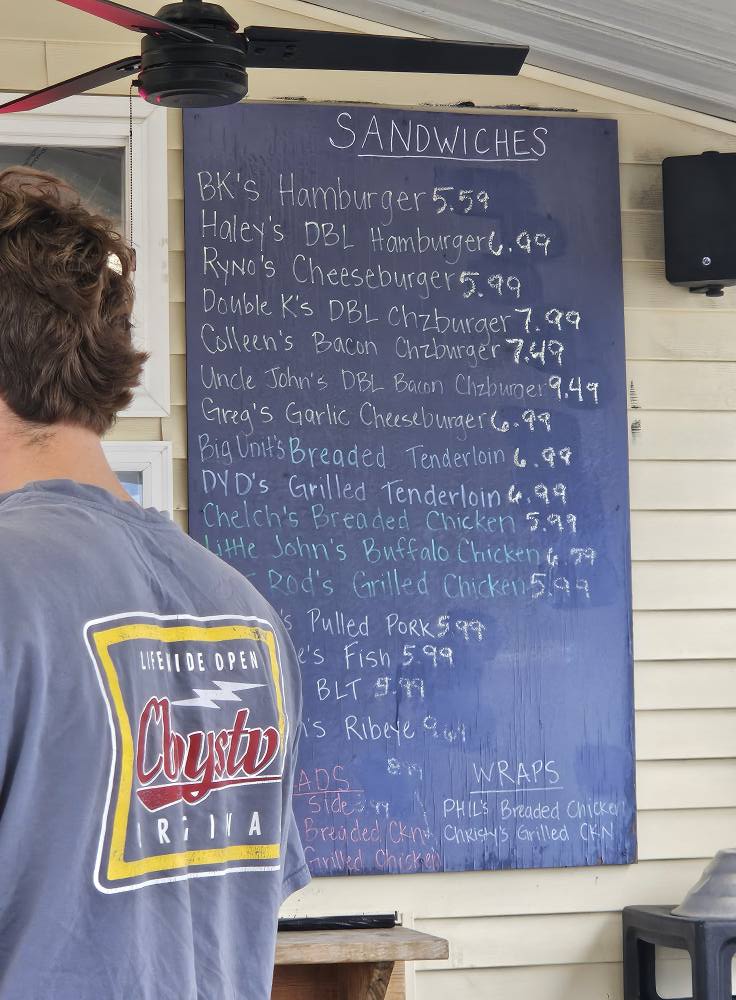 SANDWICHES
BK's Hamburger 5.59
Haley's DBL Hamburger 6.99
Ryno's Cheeseburger 5.99
Double K's DBL Chzburger 7.99
Colleen's Bacon Chzburger 7.49
Uncle John's DBL Bacon Chzburger 9.49
Greg's Garlic Cheeseburger 6.99
Big Unit's Breaded Tenderloin 6.99
DYD's Grilled Tenderloin 6.99
Chelch's Breaded Chicken 5.99
Little John's Buffalo Chicken 6.79
Rod's Grilled Chicken 5.99
's Pulled Pork 5.99
e's Fish 5.99
BLT 5.99
's Ribeye
ADS
Side 3.99
Breaded Ckn
Grilled Chicken
WRAPS
PHIL's Breaded Chicken
Christy's Grilled CKN
LIFE WIDE OPEN